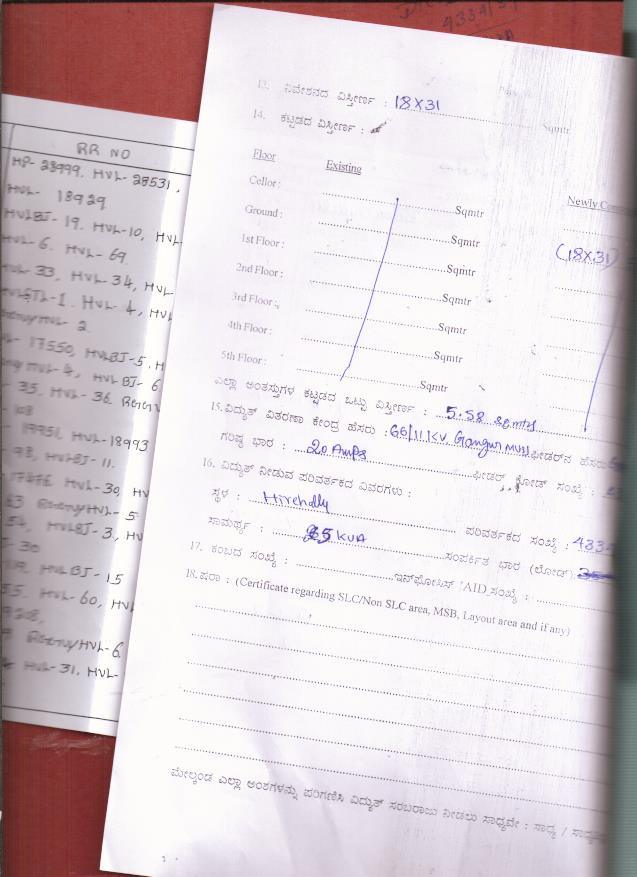 4334/
RR NO
HP- 28999. HVL- 28531,
HVL- 18929
HVLBJ- 19. HVL-10, HVL-
HVL- 6. HVL- 69
HVL- 33, HVL- 34, HVL
- 1. HVL- 4, HVL
HVL- 2
- 17550, HVLBJ-5. H
HVL- 4, HVLBJ- 6
- 35. HVL- 36.
- 108
- 19951, HVL-18993
- 93, HVLBJ- 11.
- 17476 HVL- 30, HV
63 HVL- 5
54, HVLBJ-3, HV
- 30
119, HVLBJ- 15
55. HVL- 60, HVL
HVL-6
HVL- 31, HVL-
13. ನಿವೇಶನದ ವಿಸ್ತೀರ್ಣ : 18X31 Sqmtr
14. ಕಟ್ಟಡದ ವಿಸ್ತೀರ್ಣ :
Floor Existing Newly Cons
Cellor : Sqmtr
Ground : Sqmtr (18X31)
1st Floor : Sqmtr
2nd Floor : Sqmtr
3rd Floor : Sqmtr
4th Floor : Sqmtr
5th Floor : Sqmtr
ಎಲ್ಲಾ ಅಂತಸ್ತುಗಳ ಕಟ್ಟಡದ ಒಟ್ಟು ವಿಸ್ತೀರ್ಣ : 5.58 sqmtrs
15.ವಿದ್ಯುತ್ ವಿತರಣಾ ಕೇಂದ್ರ ಹೆಸರು : 66/11KV ಫೀಡರ್‌ನ ಹೆಸರು
ಗರಿಷ್ಠ ಭಾರ : 20 Amps ಫೀಡರ್ ಕೋಡ್ ಸಂಖ್ಯೆ :
16. ವಿದ್ಯುತ್ ನೀಡುವ ಪರಿವರ್ತಕದ ವಿವರಗಳು :
ಸ್ಥಳ : Hirehally ಪರಿವರ್ತಕದ ಸಂಖ್ಯೆ : 4334
ಸಾಮರ್ಥ್ಯ : 25 KVA ಸಂಪರ್ಕಿತ ಭಾರ (ಲೋಡ್):
17. ಕಂಬದ ಸಂಖ್ಯೆ : ಇನ್‌ಫೋಸಿಸ್ 'AID ಸಂಖ್ಯೆ :
18.ಷರಾ : (Certificate regarding SLC/Non SLC area, MSB, Layout area and if any)
ಮೇಲ್ಕಂಡ ಎಲ್ಲಾ ಅಂಶಗಳನ್ನು ಪರಿಗಣಿಸಿ ವಿದ್ಯುತ್ ಸರಬರಾಜು ನೀಡಲು ಸಾಧ್ಯವೇ : ಸಾಧ್ಯ /